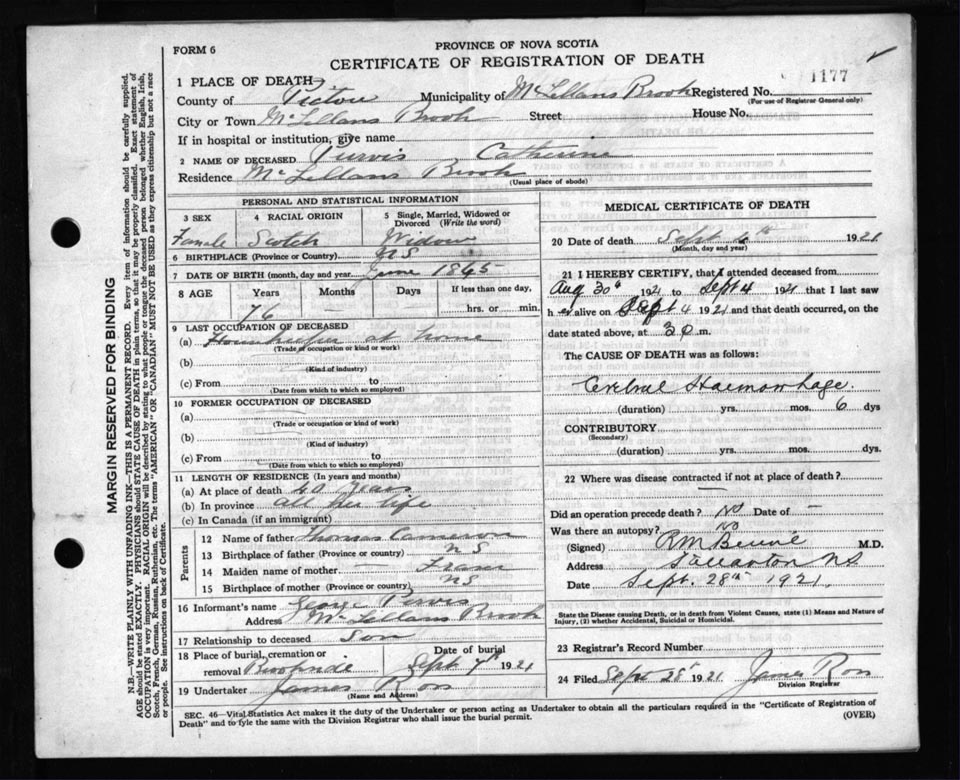 PROVINCE OF NOVA SCOTIA
FORM 6
CERTIFICATE OF REGISTRATION OF DEATH
1177
1 PLACE OF DEATH
County of Pictou Municipality of McLellans Brook Registered No.
(For use of Registrar General only)
City or Town McLellans Brook Street House No.
If in hospital or institution, give name
2 NAME OF DECEASED Purvis Catherine
Residence McLellans Brook
(Usual place of abode)
PERSONAL AND STATISTICAL INFORMATION
3 SEX 4 RACIAL ORIGIN 5 Single, Married, Widowed or Divorced (Write the word)
Female Scotch Widow
6 BIRTHPLACE (Province or Country) NS
7 DATE OF BIRTH (month, day and year) June 1845
8 AGE Years Months Days If less than one day,
76 — hrs. or min.
9 LAST OCCUPATION OF DECEASED
(a) Housekeeper at home
(Trade or occupation or kind of work)
(b)
(Kind of industry)
(c) From to
(Date from which to which so employed)
10 FORMER OCCUPATION OF DECEASED
(a)
(Trade or occupation or kind of work)
(b)
(Kind of industry)
(c) From to
(Date from which to which so employed)
11 LENGTH OF RESIDENCE (In years and months)
(a) At place of death 40 years
(b) In province all her life
(c) In Canada (if an immigrant)
Parents
12 Name of father Thomas Cameron
13 Birthplace of father (Province or country) NS
14 Maiden name of mother — Fraser
15 Birthplace of mother (Province or country) NS
16 Informant's name George Purvis
Address McLellans Brook
17 Relationship to deceased Son
18 Place of burial, cremation or removal Date of burial
Sept 7th 1921
19 Undertaker James Ross
(Name and Address)
MEDICAL CERTIFICATE OF DEATH
20 Date of death Sept 1921
(Month, day and year)
21 I HEREBY CERTIFY, that I attended deceased from
Aug 30th 1921 to Sept 4 1921 that I last saw
h er alive on Sept 4 1921 and that death occurred, on the
date stated above, at 3 m.
The CAUSE OF DEATH was as follows:
Cerebral Haemorrhage.
(duration) yrs. mos. 6 dys
CONTRIBUTORY
(Secondary)
(duration) yrs. mos. dys.
22 Where was disease contracted if not at place of death?
—
Did an operation precede death? No Date of —
Was there an autopsy? No
(Signed) M.D.
Address Stellarton NS
Date Sept. 28th 1921.
State the Disease causing Death, or in death from Violent Causes, state (1) Means and Nature of
Injury, (2) whether Accidental, Suicidal or Homicidal.
23 Registrar's Record Number
24 Filed Sept 28 1921 James Ross
Division Registrar
SEC. 46—Vital Statistics Act makes it the duty of the Undertaker or person acting as Undertaker to obtain all the particulars required in the "Certificate of Registration of
Death" and to fyle the same with the Division Registrar who shall issue the burial permit.
(OVER)
MARGIN RESERVED FOR BINDING
N.B.—WRITE PLAINLY WITH UNFADING INK—THIS IS A PERMANENT RECORD. Every item of information should be carefully supplied.
AGE should be stated EXACTLY. PHYSICIANS should STATE CAUSE OF DEATH in plain terms, so that it may be properly classified. Exact statement of
OCCUPATION is very important. RACIAL ORIGIN will be described by stating to what people or tongue the deceased person belonged whether English, Irish,
Scotch, French, German, Russian, Ruthenian, etc. The terms "AMERICAN" or "CANADIAN" MUST NOT BE USED as they express citizenship but not a race
or people. See instructions on back of Certificate.